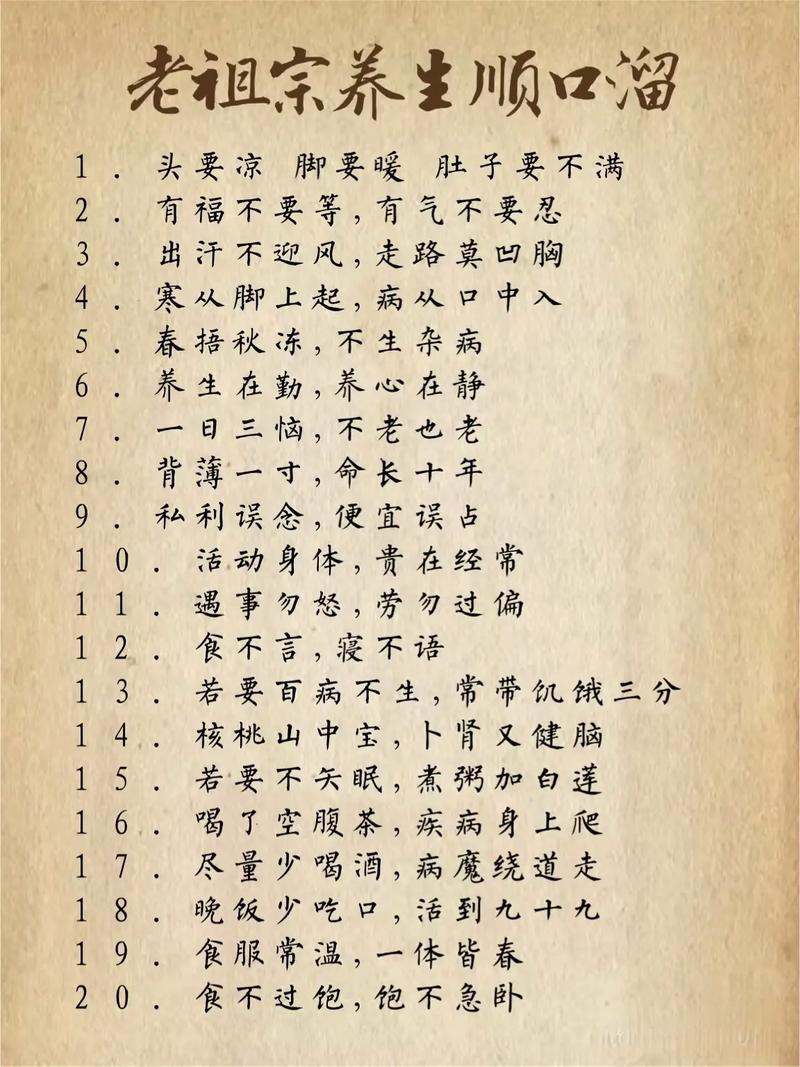 老祖宗养生顺口溜
1. 头要凉 脚要暖 肚子要不满
2. 有福不要等,有气不要忍
3. 出汗不迎风,走路莫凹胸
4. 寒从脚上起,病从口中入
5. 春捂秋冻,不生杂病
6. 养生在勤,养心在静
7. 一日三恼,不老也老
8. 背薄一寸,命长十年
9. 私利误念,便宜误占
10. 活动身体,贵在经常
11. 遇事勿怒,劳勿过偏
12. 食不言,寝不语
13. 若要百病不生,常带饥饿三分
14. 核桃山中宝,卜肾又健脑
15. 若要不矢眠,煮粥加白莲
16. 喝了空腹茶,疾病身上爬
17. 尽量少喝酒,病魔绕道走
18. 晚饭少吃口,活到九十九
19. 食服常温,一体皆春
20. 食不过饱,饱不急卧